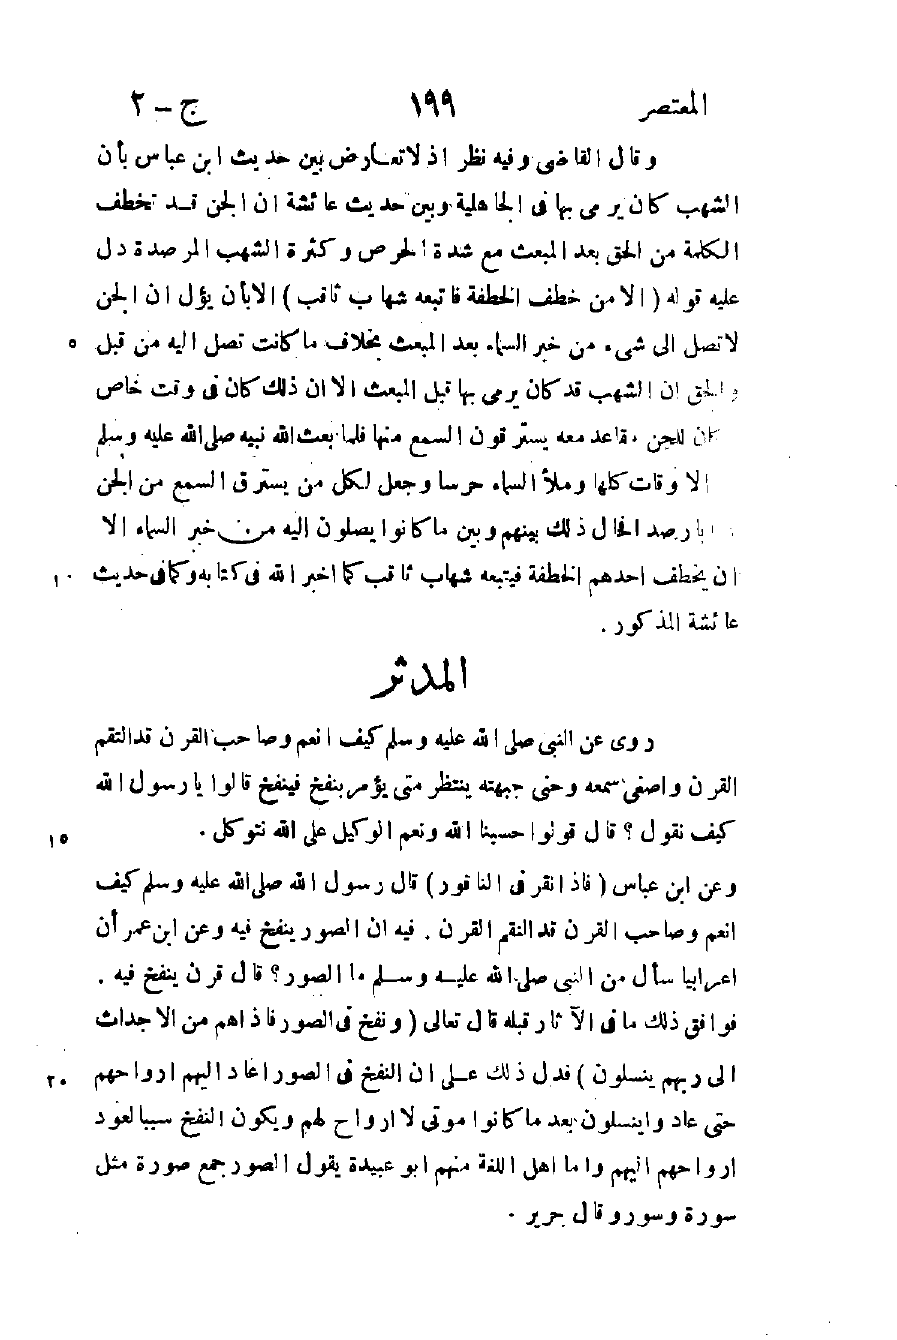 المعتصر ١٩٩ ج - ٢
وقال القاضى وفيه نظر اذ لا تعارض بين حديث ابن عباس بأن
الشهب كان يرمى بها فى الجاهلية وبين حديث عائشة ان الجن قد تخطف
الكلمة من الحق بعد المبعث مع شدة الحرص وكثرة الشهب المرصدة دل
عليه قوله ( الا من خطف الخطفة فاتبعه شهاب ثاقب ) الا بأن يؤل ان الجن
لا تصل الى شىء من خبر السماء بعد المبعث بخلاف ما كانت تصل اليه من قبل ٥
والحق ان الشهب قد كان يرمى بها قبل المبعث الا ان ذلك كان فى وقت خاص
كان للجن مقاعد معه يسترقون السمع منها فلما بعث الله نبيه صلى الله عليه وسلم
الاوقات كلها وملأ السماء حرسا وجعل لكل من يسترق السمع من الجن
يرصد الحال ذلك بينهم وبين ما كانوا يصلون اليه من خبر السماء الا
ان يخطف احدهم الخطفة فيتبعه شهاب ثاقب كما اخبر الله فى كتابه وكما فى حديث ١٠
عائشة المذكور .
المدثر
روى عن النبى صلى الله عليه وسلم كيف انعم وصاحب القرن قد التقم
القرن واصغى سمعه وحنى جبهته ينتظر متى يؤمر ينفخ فينفخ قالوا يا رسول الله
كيف نقول ؟ قال قولوا حسبنا الله ونعم الوكيل على الله نتوكل . ١٥
وعن ابن عباس ( فاذا نقر فى الناقور ) قال رسول الله صلى الله عليه وسلم كيف
انعم وصاحب القرن قد التقم القرن . فيه ان الصور ينفخ فيه وعن ابن عمر أن
اعرابيا سأل من النبى صلى الله عليه وسلم ما الصور ؟ قال قرن ينفخ فيه .
فوافق ذلك ما فى الآثار قبله قال تعالى ( ونفخ فى الصور فاذا هم من الاجداث
الى ربهم ينسلون ) فدل ذلك على ان النفخ فى الصور اعاد اليهم ارواحهم ٢٠
حتى عادوا ينسلون بعد ما كانوا موتى لا ارواح لهم ويكون النفخ سببا لعود
ارواحهم اليهم واما اهل اللغة منهم ابو عبيدة يقول الصور جمع صورة مثل
سورة وسور وقال جرير .